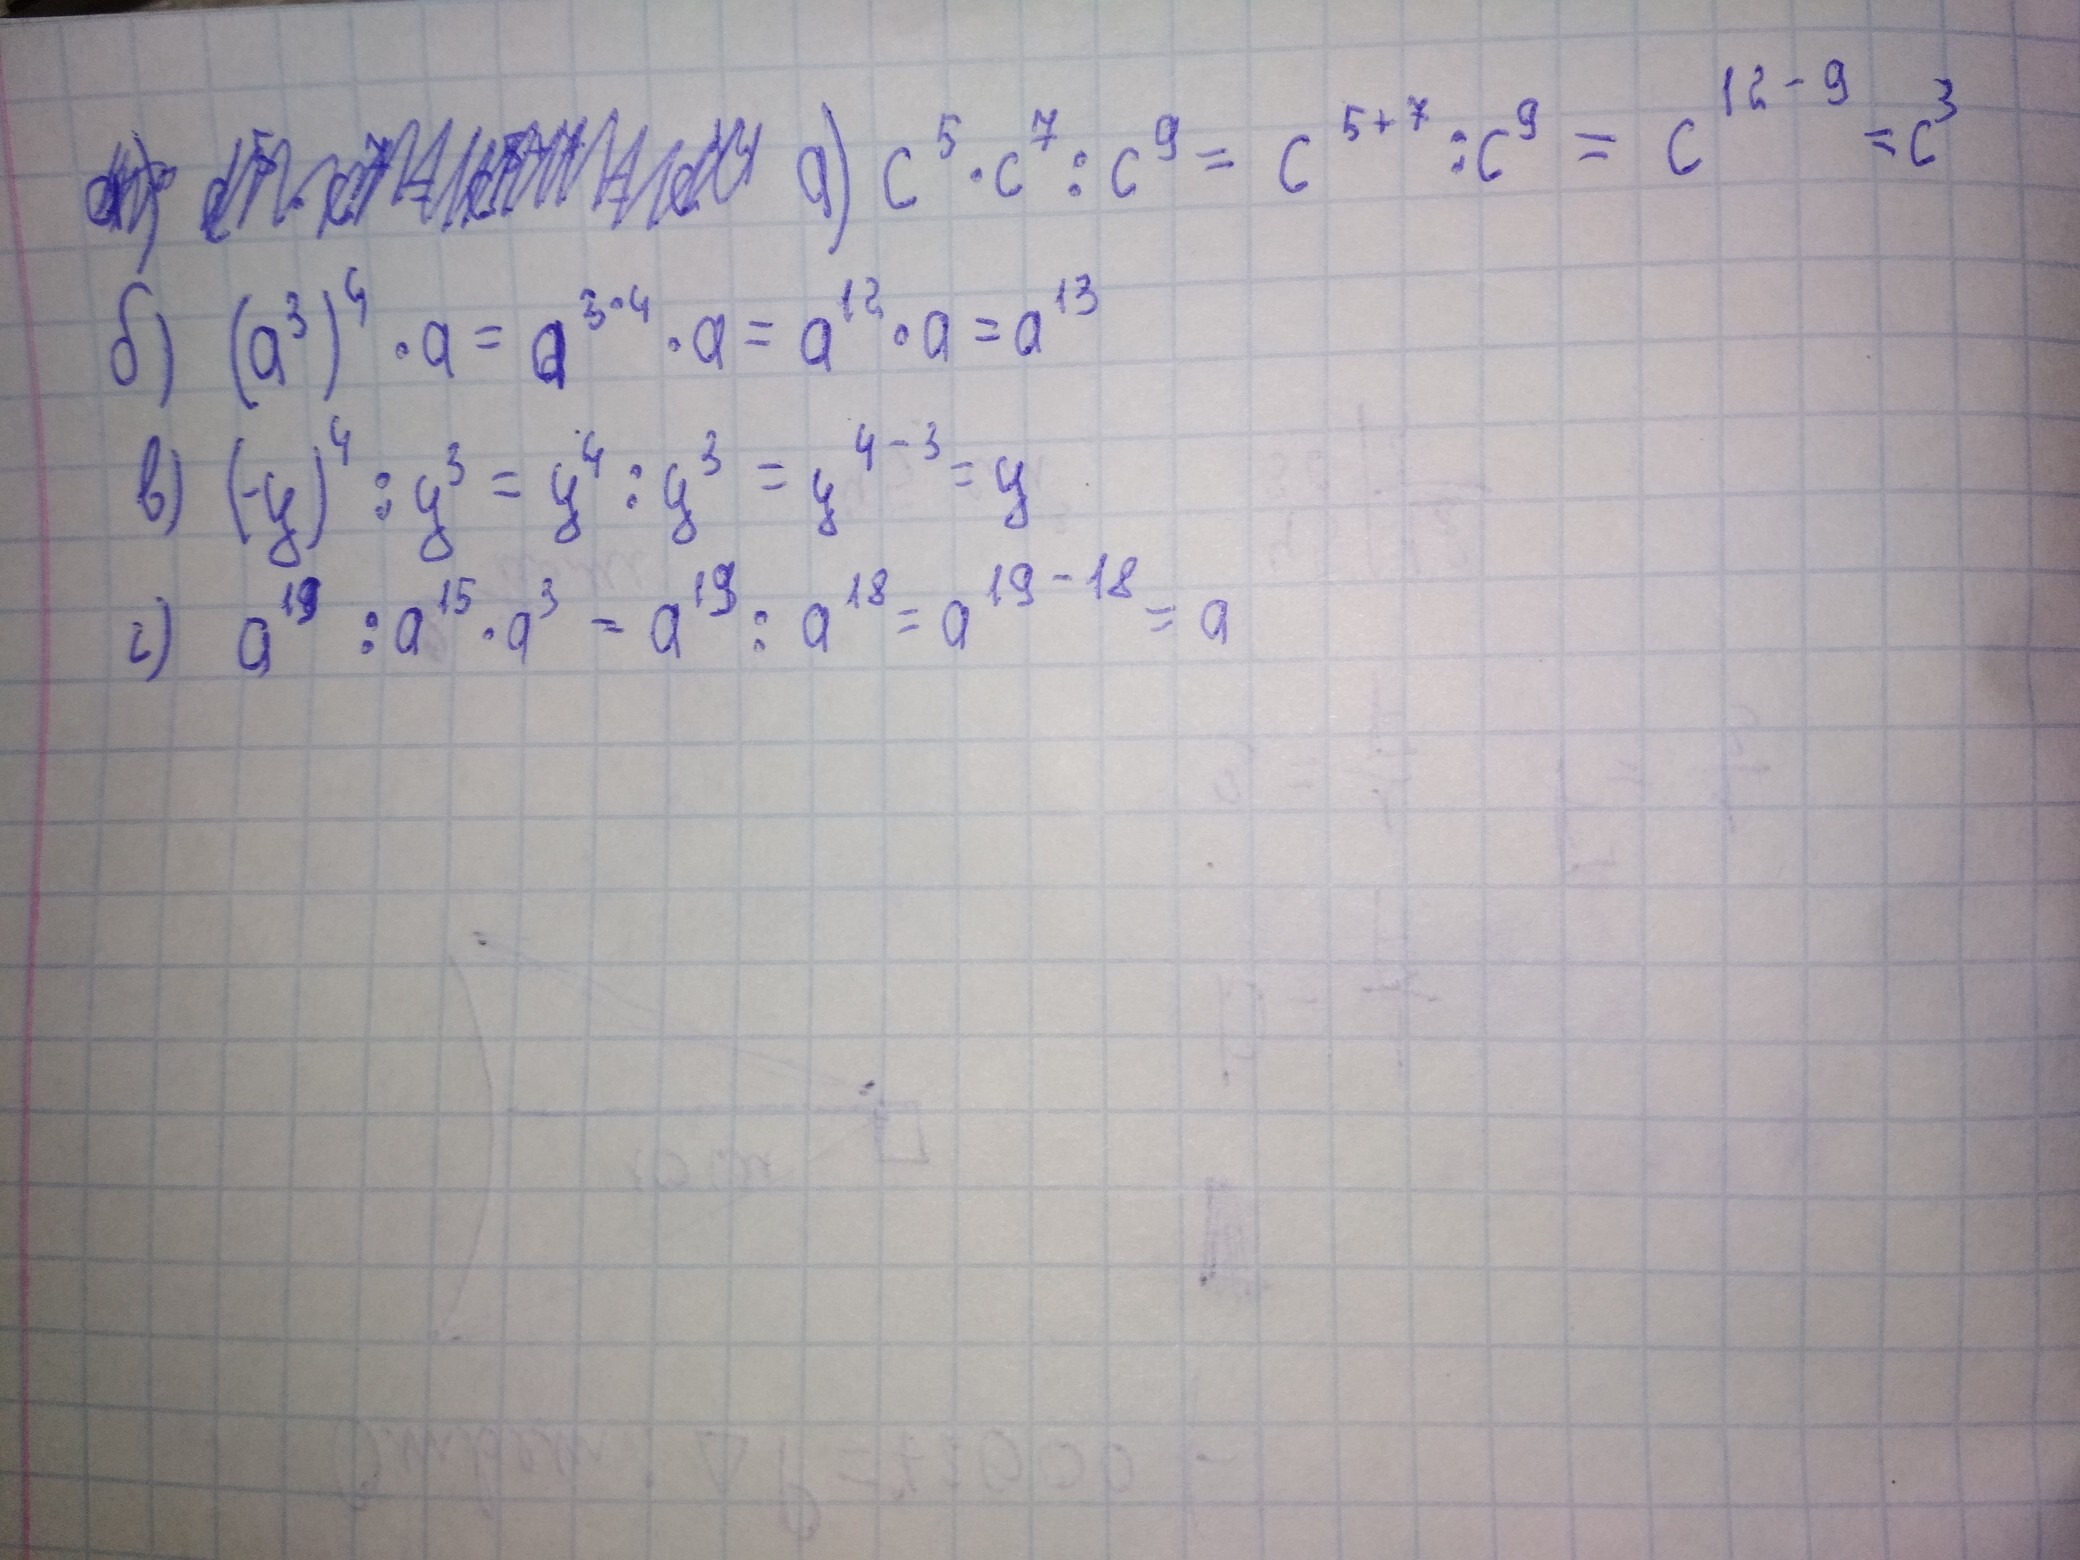 а) c⁵ · c⁷ : c⁹ = c⁵⁺⁷ : c⁹ = c¹²⁻⁹ = c³
б) (a³)⁴ · a = a³˙⁴ · a = a¹² · a = a¹³
в) (-y)⁴ : y³ = y⁴ : y³ = y⁴⁻³ = y
г) a¹⁹ : a¹⁵ · a³ = a¹⁹ : a¹⁸ = a¹⁹⁻¹⁸ = a